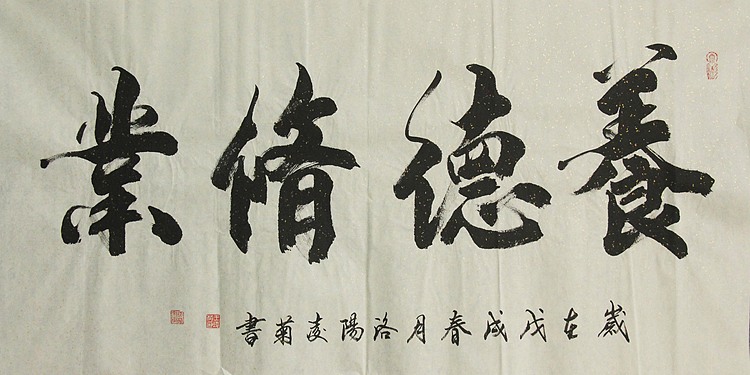 養德脩業
歲在戊戌春月洛陽凌菊書